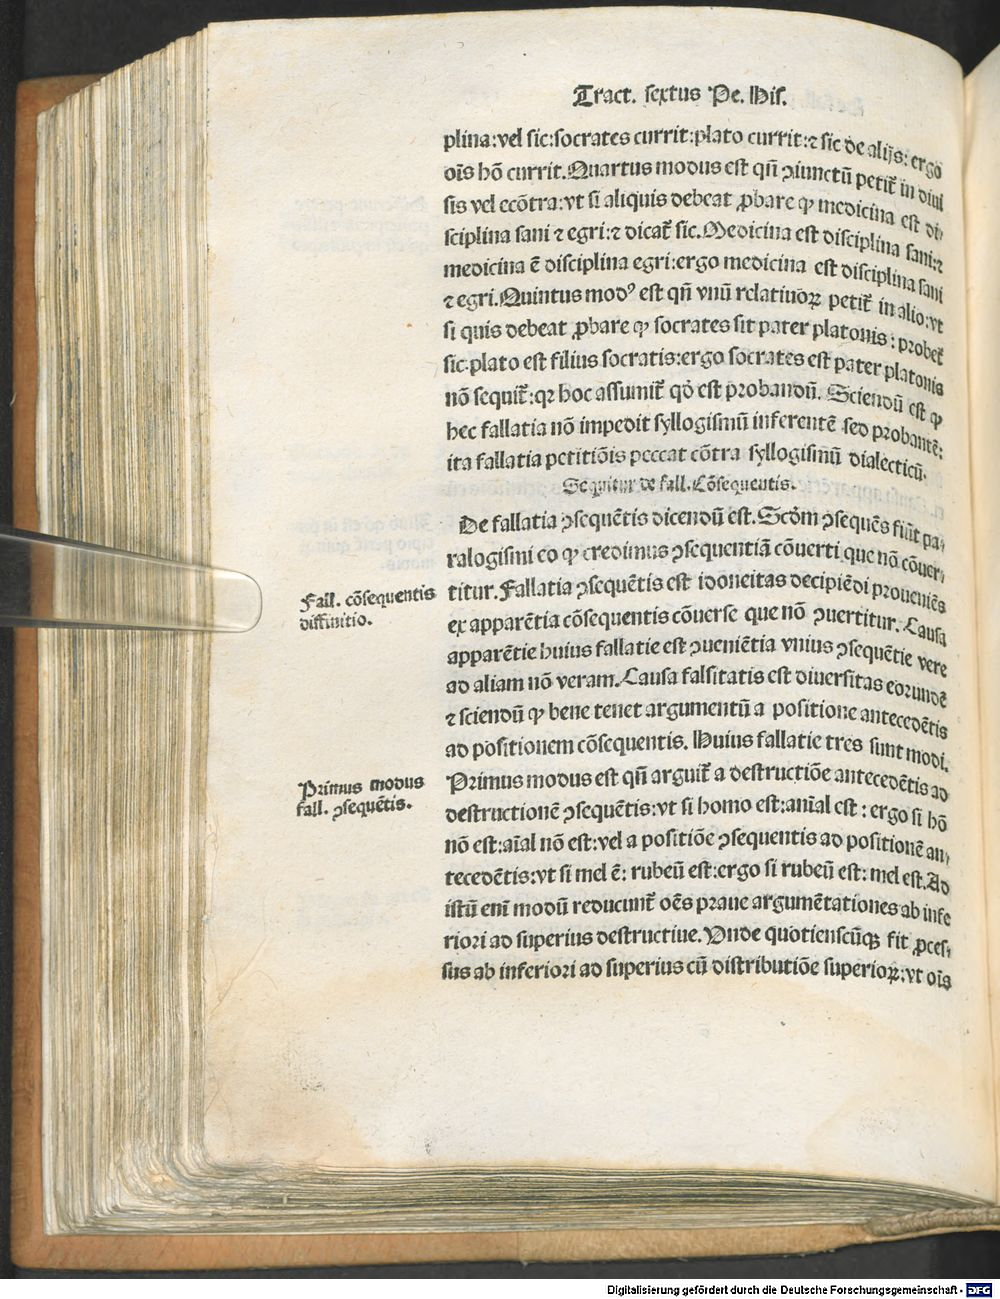 Tract. sextus Pe. His.
plina: vel sic: socrates currit: plato currit: ⁊ sic de alijs: ergo
oīs hō currit. Quartus modus est qñ ꝯiunctū petit᷑ in diui
sis vel ecōtra: vt si aliquis debeat ꝓbare ꝙ medicina est di⸗
sciplina sani ⁊ egri: ⁊ dicat᷑ sic. Medicina est disciplina sani: ⁊
medicina ē disciplina egri: ergo medicina est disciplina sani
⁊ egri. Quintus modꝰ est qñ vnū relatiuoꝝ petit᷑ in alio: vt
si quis debeat ꝓbare ꝙ socrates sit pater platonis: probet᷑
sic. plato est filius socratis: ergo socrates est pater platonis
nō sequit᷑: qꝛ hoc assumit᷑ qđ est probandū. Sciendū est ꝙ
hec fallatia nō impedit syllogismū inferentē sed probantē:
ita fallatia petitiōis peccat cōtra syllogismū dialecticū.
Sequitur de fall. Cōsequentis.
De fallatia ꝯsequētis dicendū est. Scđm ꝯsequēs fiūt pa⸗
ralogismi eo ꝙ credimus ꝯsequentiā cōuerti que nō cōuer⸗
Fall. cōsequentis
diffinitio.
titur. Fallatia ꝯsequētis est idoneitas decipiēdi proueniēs
ex apparētia cōsequentis cōuerse que nō ꝯuertitur. Causa
apparētie huius fallatie est ꝯueniētia vnius ꝯsequētie vere
ad aliam nō veram. Causa falsitatis est diuersitas eorundē
⁊ sciendū ꝙ bene tenet argumentū a positione antecedētis
ad positionem cōsequentis. Huius fallatie tres sunt modi.
Primus modus
fall. ꝯsequētis.
Primus modus est qñ arguit᷑ a destructiōe antecedētis ad
destructionē ꝯsequētis: vt si homo est: aīal est: ergo si hō
nō est: aīal nō est: vel a positiōe ꝯsequentis ad positionē an⸗
tecedētis: vt si mel ē: rubeū est: ergo si rubeū est: mel est. Ad
istū enī modū reducunt᷑ oēs praue argumētationes ab infe
riori ad superius destructiue. Vnde quotienscūqꝫ fit ꝓces⸗
sus ab inferiori ad superius cū distributiōe superioꝝ: vt oīs
Digitalisierung gefördert durch die Deutsche Forschungsgemeinschaft - DFG